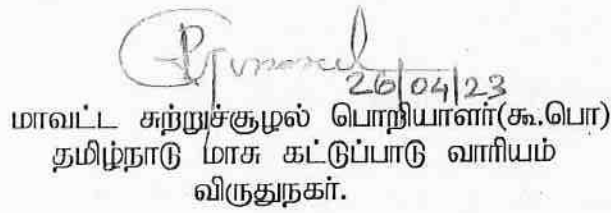 26/04/23
மாவட்ட சுற்றுச்சூழல் பொறியாளர்(கூ.பொ)
தமிழ்நாடு மாசு கட்டுப்பாடு வாரியம்
விருதுநகர்.